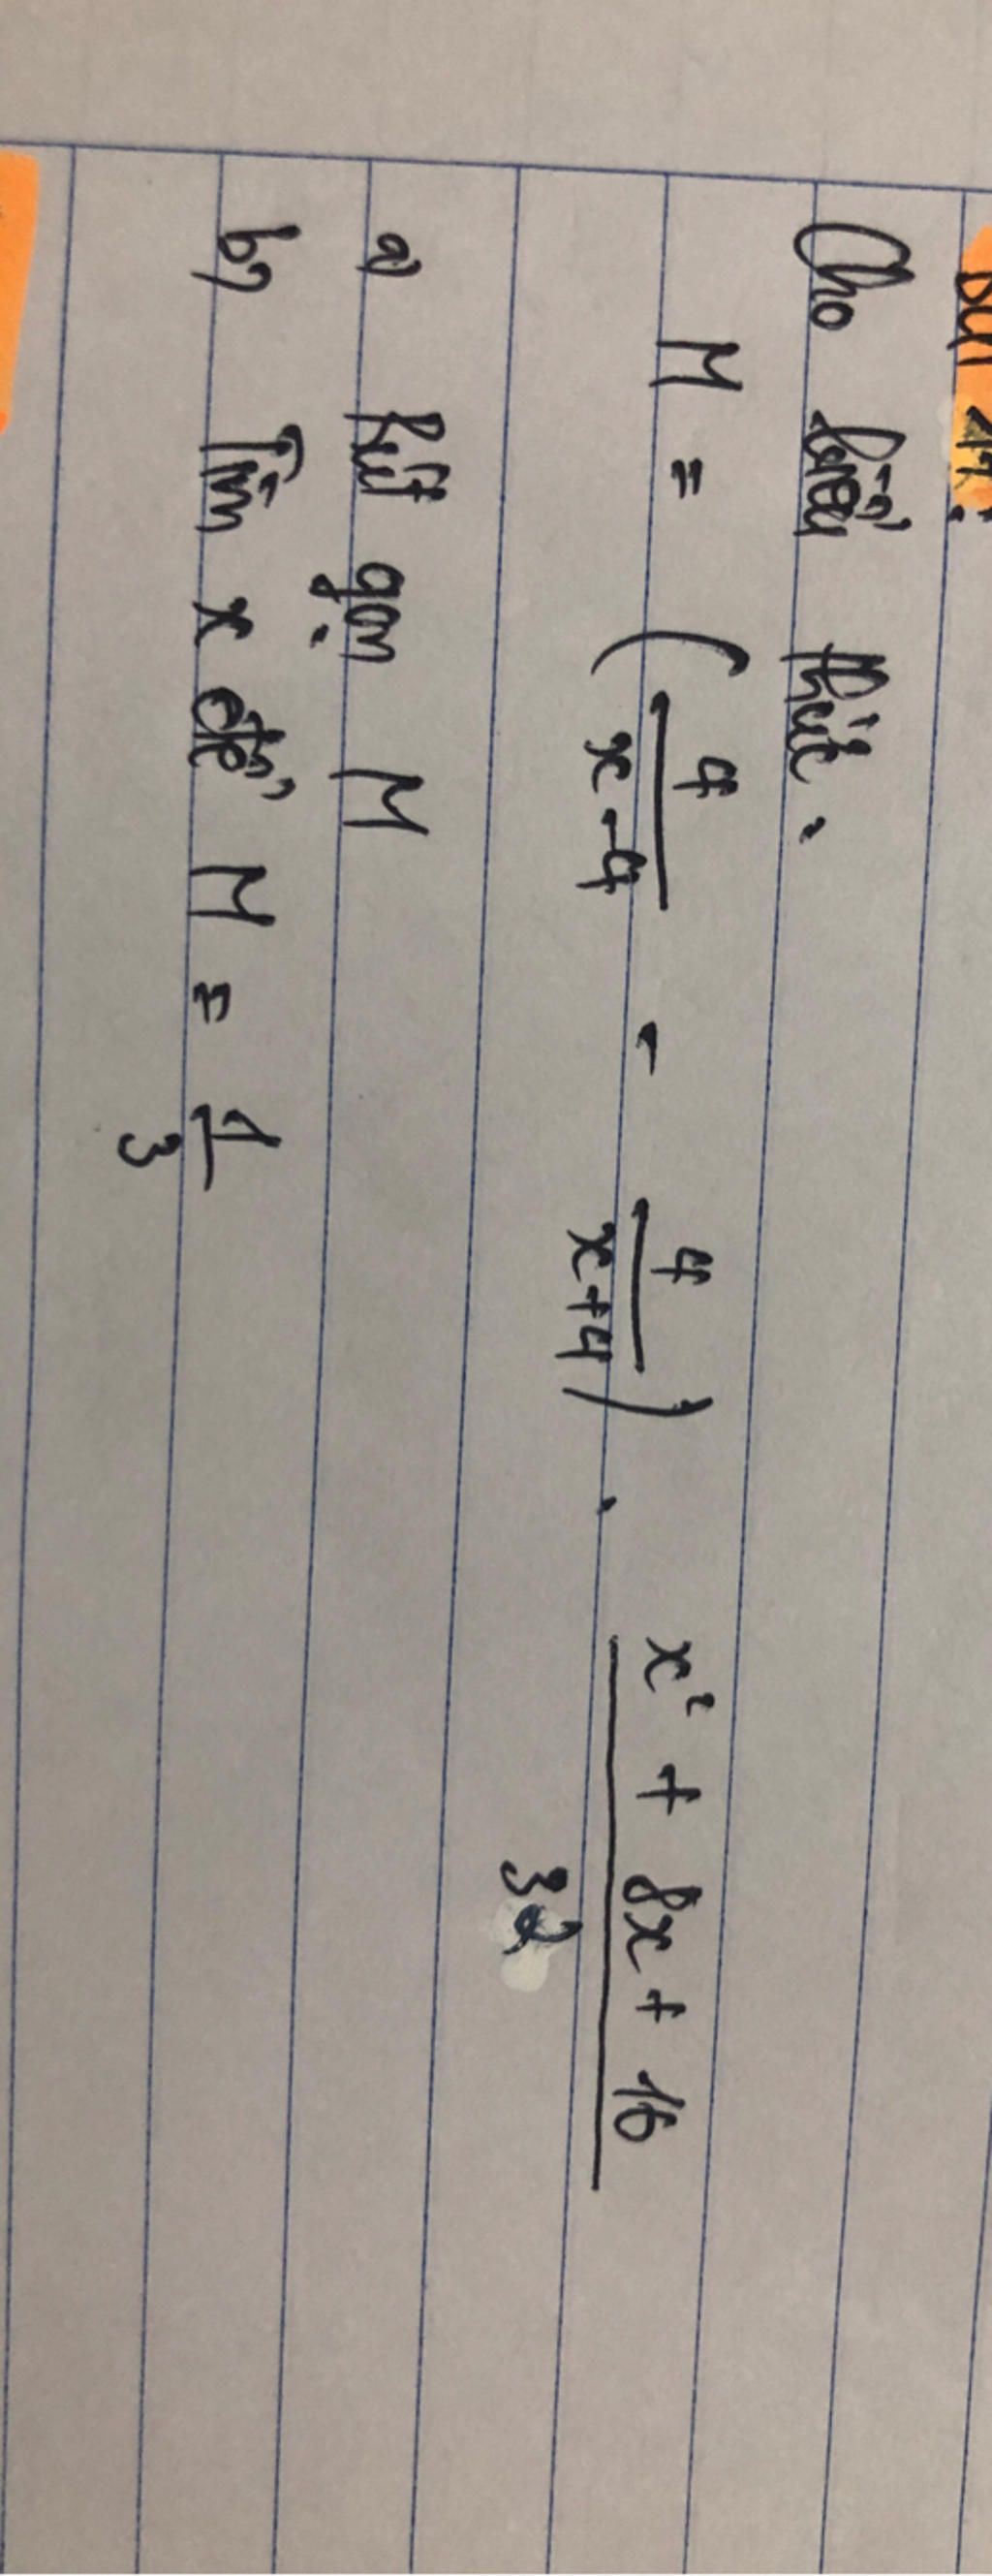 Bài 17:
Cho biểu thức.
M = ( 4/(x-4) - 4/(x+4) ) . (x² + 8x + 16)/32
a) Rút gọn M
b) Tìm x để M = 1/3